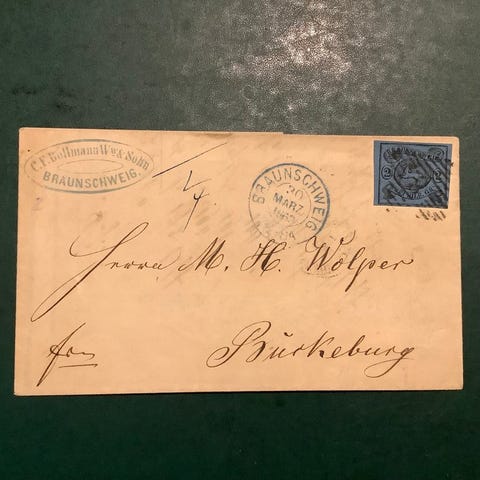 C. F. Bollmann Ww & Sohn
BRAUNSCHWEIG.
BRAUNSCHWEIG
30
MÄRZ
2
2
1/4
Herrn M. H. Wolper
frn
Bückeburg